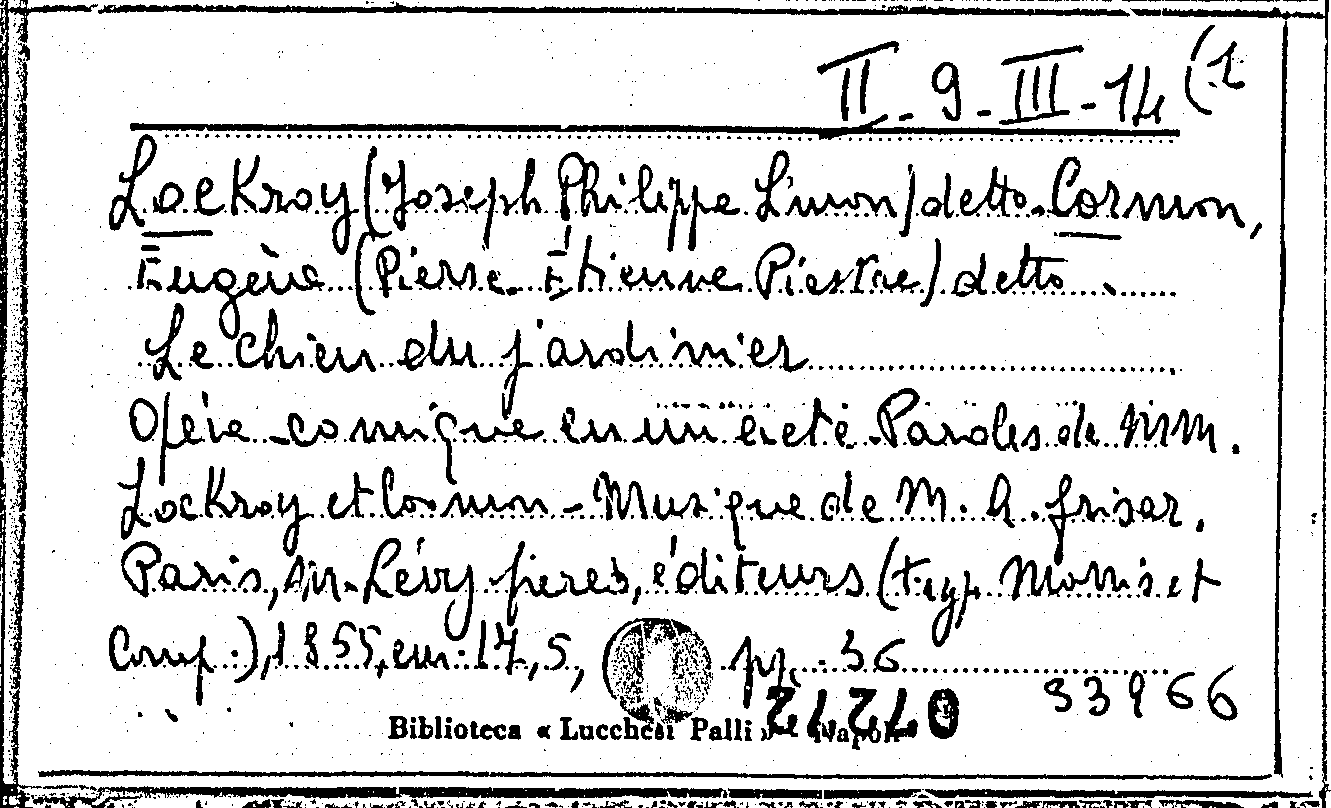 II-9-III-14(1
Lockroy (Joseph Philippe Simon) detto-Cormon,
Eugène (Pierre-Étienne Piestre) detto
Le chien du jardinier
Opéra-comique en un acte. Paroles de MM.
Lockroy et Cormon - Musique de M. A. Grisar.
Paris, M. Lévy frères, éditeurs (typ. Morris et
Comp.), 1855, cm. 17,5, pp. 36
93966
Biblioteca « Lucchesi Palli » - Napoli